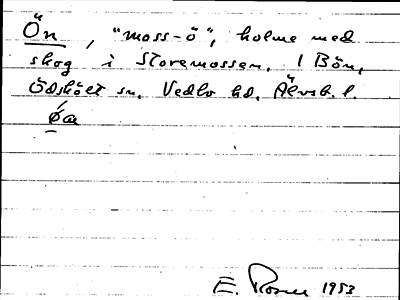 Ön, "moss-ö", holme med
skog i Storemossen. I Bön,
Ödsköls sn. Vedbo hd. Älvsb. l.
öa
E. Rosell 1953